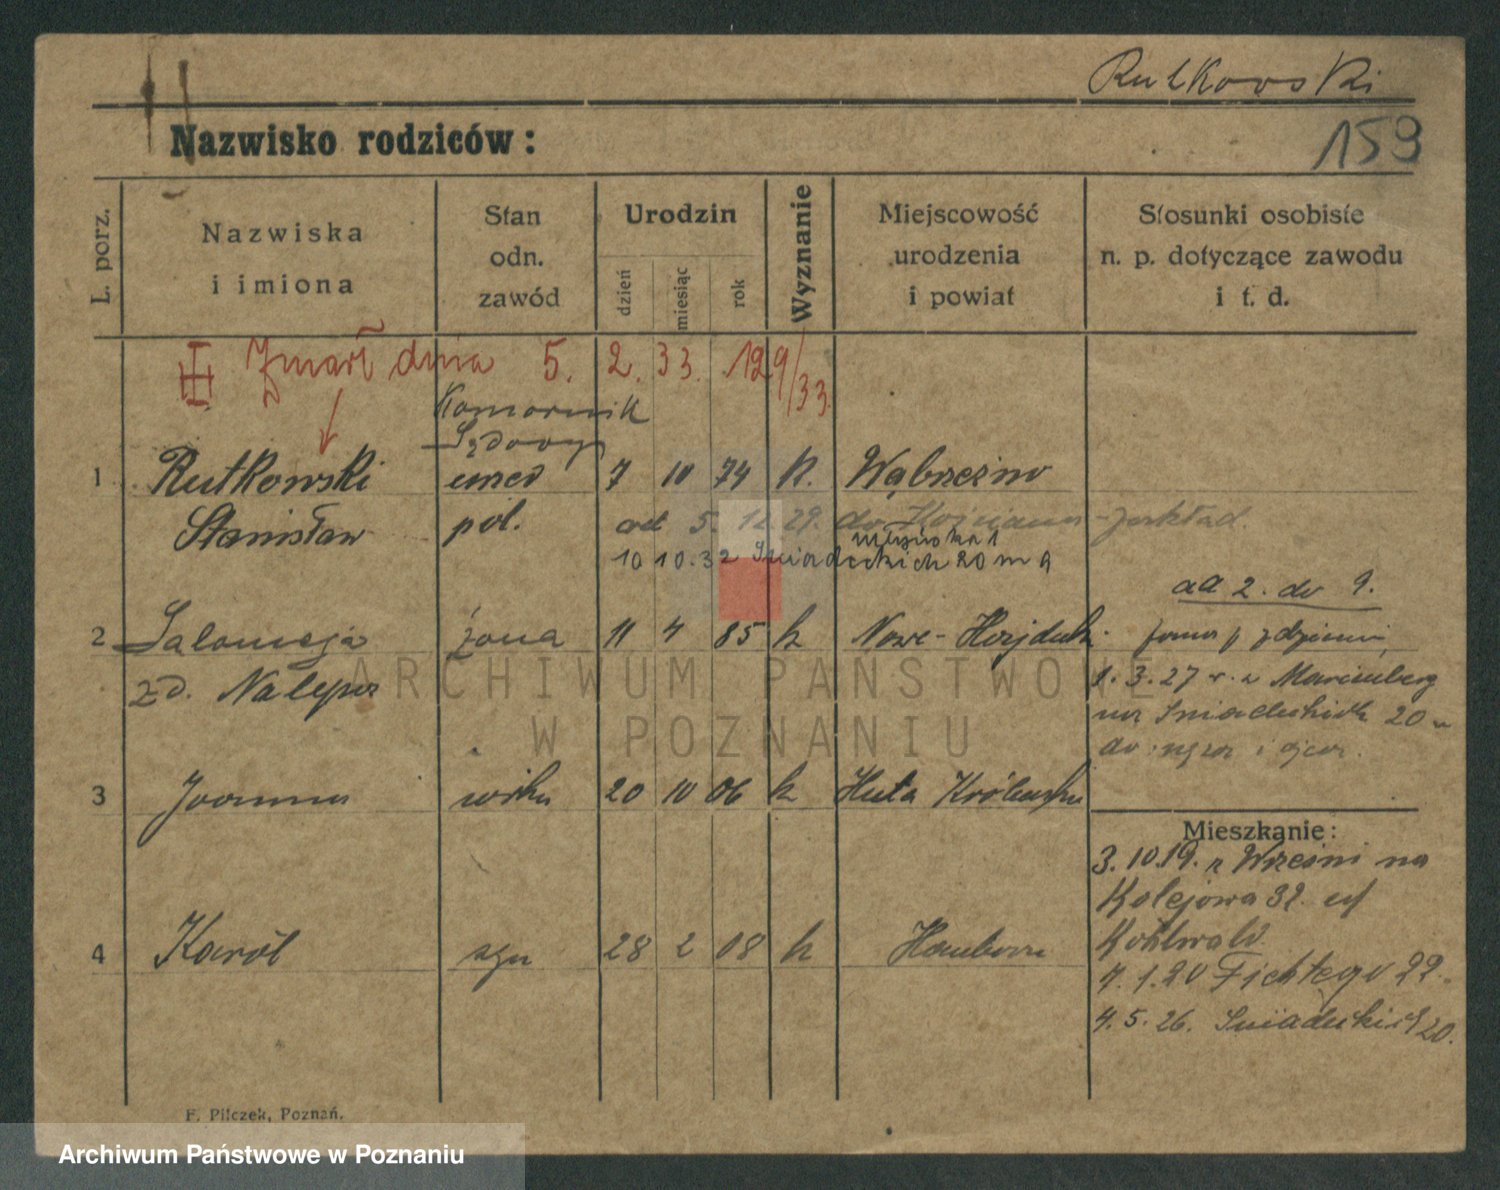 Rutkowski
159
Nazwisko rodziców:
L. porz.
Nazwiska
i imiona
Stan
odn.
zawód
Urodzin
dzień
miesiąc
rok
Wyznanie
Miejscowość
urodzenia
i powiat
Stosunki osobiste
n. p. dotyczące zawodu
i t. d.
Zmarł dnia 5. 2. 33. 129/33.
Komornik
Sądowy
1 Rutkowski 7 10 74 k. Wąbrzeźno
Stanisław pol. od 5. 12. 29. do
10 10.32 Śniadeckich 20 m 9
ad 2. do 9.
2 Salomeja żona 11 4 85 k Nowe-Hajduk
zd. Nalepa
1.3.27 r. z
Śniadeckich 20
do i ojca.
3 Joanna 20 10 06 k Huta
Mieszkanie:
3.10.19. z Wrześni na
Kolejowa 32.
Kohlwald
4 Karól syn 28 2 08 k
7.1.20 Fichtego 22.
4.5.26. Śniadeckich 20.
F. Pilczek, Poznań.
ARCHIWUM PAŃSTWOWE
W POZNANIU
Archiwum Państwowe w Poznaniu